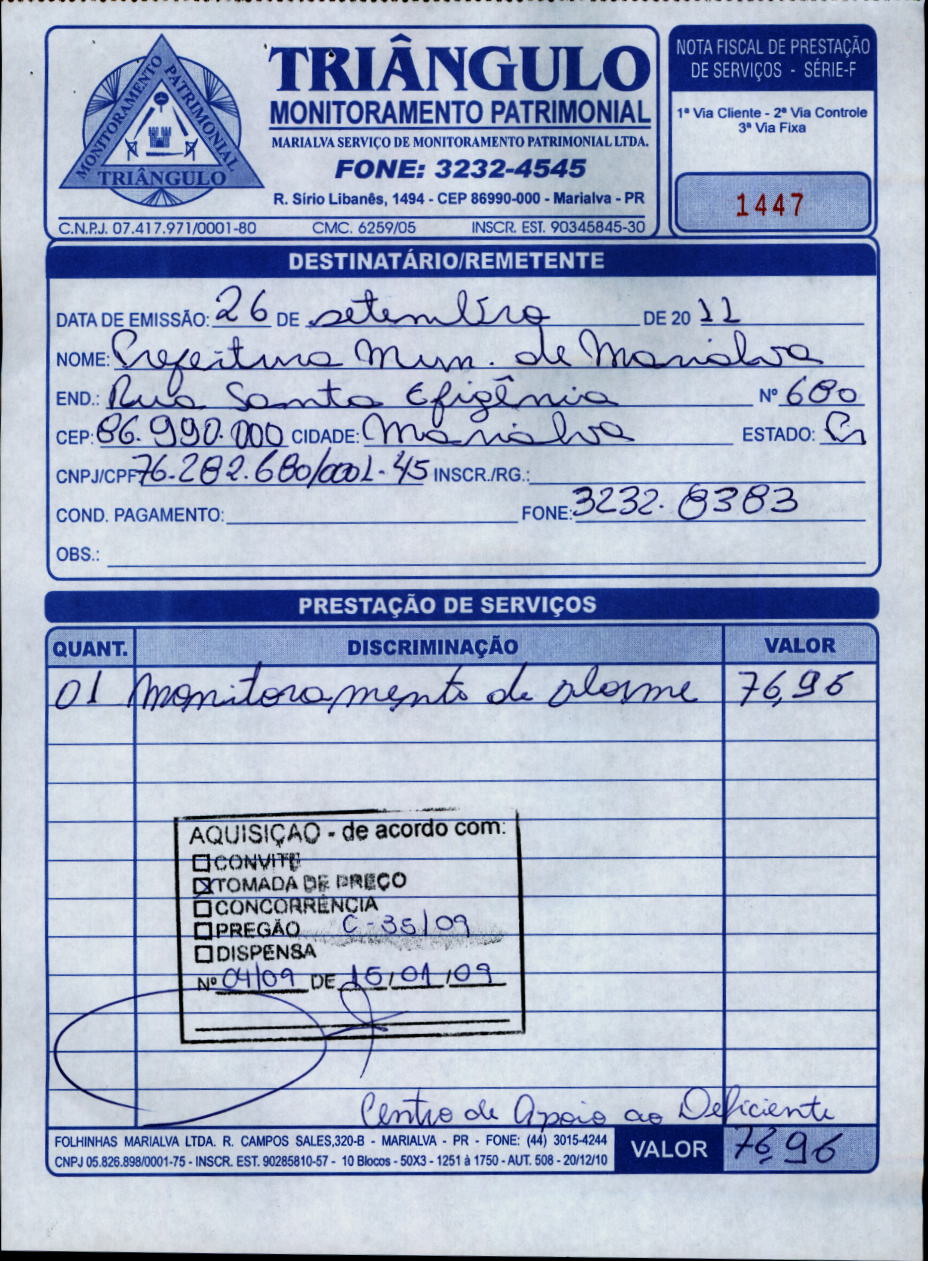 MONITORAMENTO PATRIMONIAL
TRIÂNGULO
TRIÂNGULO
MONITORAMENTO PATRIMONIAL
MARIALVA SERVIÇO DE MONITORAMENTO PATRIMONIAL LTDA.
FONE: 3232-4545
R. Sírio Libanês, 1494 - CEP 86990-000 - Marialva - PR
C.N.P.J. 07.417.971/0001-80 CMC. 6259/05 INSCR. EST. 90345845-30
NOTA FISCAL DE PRESTAÇÃO
DE SERVIÇOS - SÉRIE-F
1ª Via Cliente - 2ª Via Controle
3ª Via Fixa
1447
DESTINATÁRIO/REMETENTE
DATA DE EMISSÃO: 26 DE setembro DE 20 11
NOME: Prefeitura Mun. de Marialva
END.: Rua Santa Efigênia Nº 680
CEP: 86.990.000 CIDADE: Marialva ESTADO: Pr
CNPJ/CPF 76.282.680/0001-45 INSCR./RG.:
COND. PAGAMENTO: FONE: 3232.8383
OBS.:
PRESTAÇÃO DE SERVIÇOS
QUANT. DISCRIMINAÇÃO VALOR
01 Monitoramento de alarme 76,96
AQUISIÇAO - de acordo com:
CONVITE
TOMADA DE PREÇO
CONCORRÊNCIA
PREGÃO C-35/09
DISPENSA
Nº 04/09 DE 15/01/09
Centro de Apoio ao Deficiente
FOLHINHAS MARIALVA LTDA. R. CAMPOS SALES,320-B - MARIALVA - PR - FONE: (44) 3015-4244
CNPJ 05.826.898/0001-75 - INSCR. EST. 90285810-57 - 10 Blocos - 50X3 - 1251 à 1750 - AUT. 508 - 20/12/10
VALOR 76,96